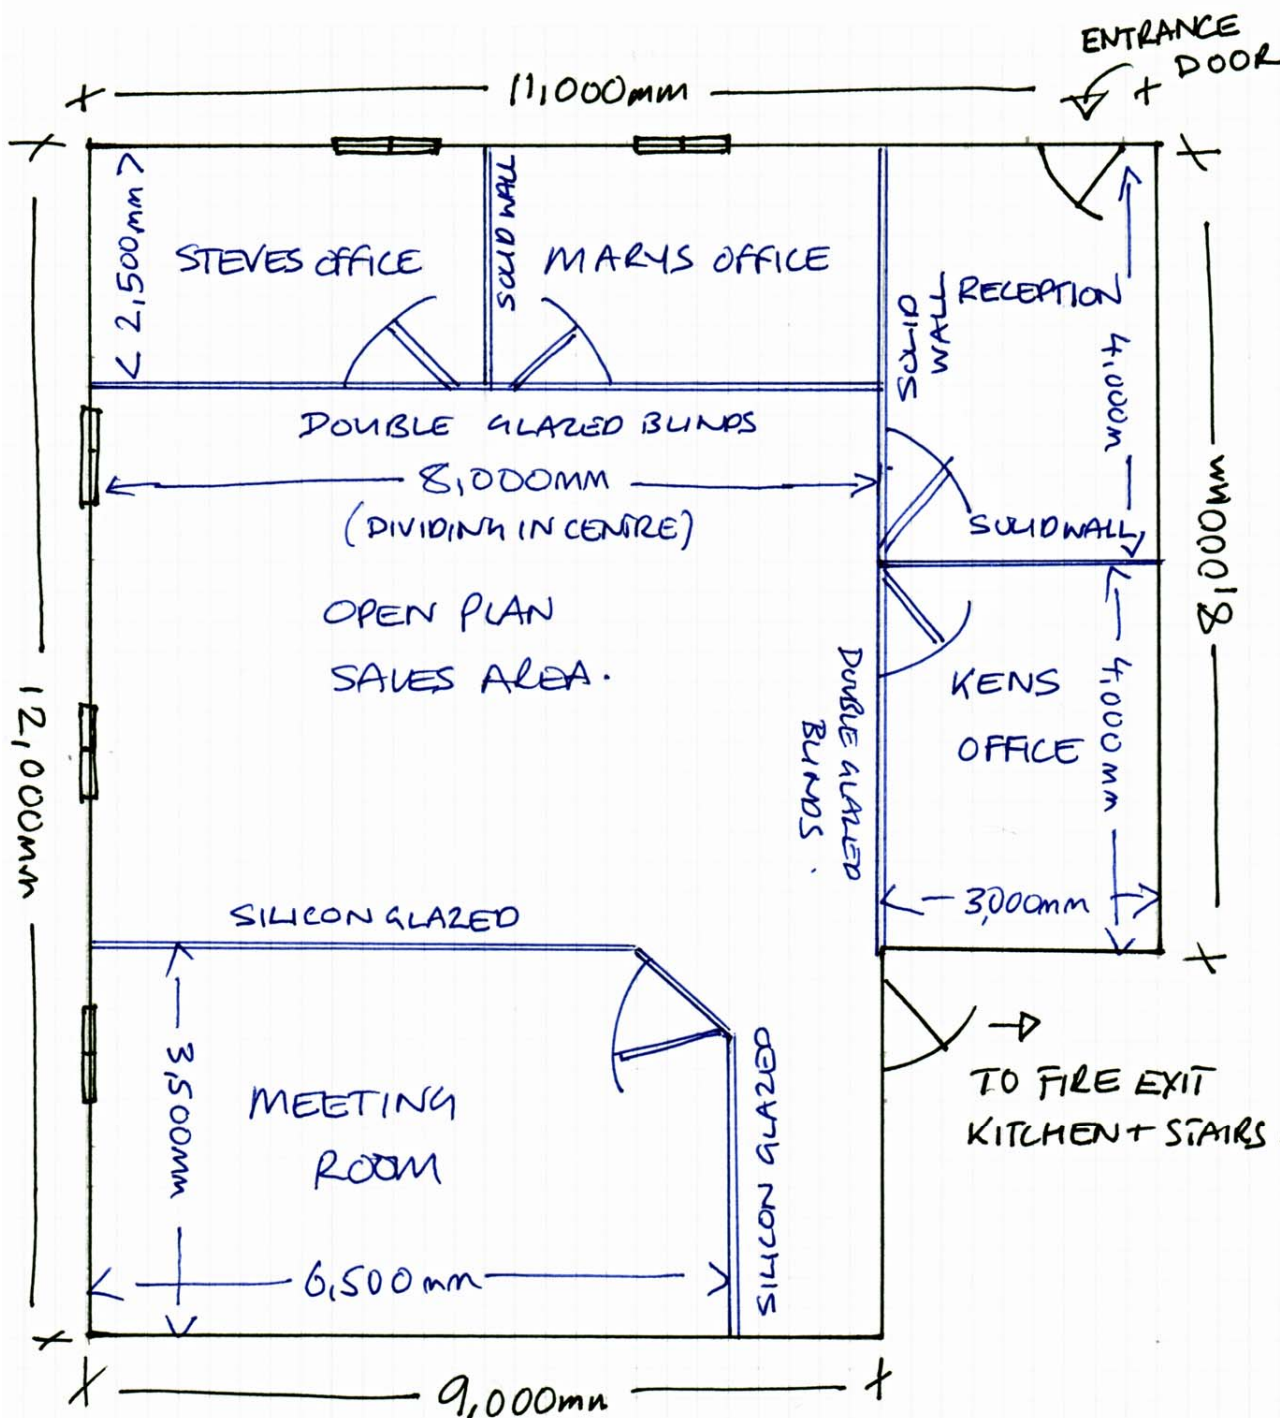 ENTRANCE
DOOR
11,000mm
< 2,500mm >
STEVES OFFICE
SOLID WALL
MARYS OFFICE
SOLID
WALL
RECEPTION
4,000m
DOUBLE GLAZED BLINDS
8,000MM
(DIVIDING IN CENTRE)
SOLID WALL
8,000mm
OPEN PLAN
SALES AREA.
DOUBLE GLAZED
BLINDS.
KENS
OFFICE
4,000mm
3,000mm
12,000mm
SILICON GLAZED
3,500mm
MEETING
ROOM
SILICON GLAZED
TO FIRE EXIT
KITCHEN + STAIRS
6,500mm
9,000mm